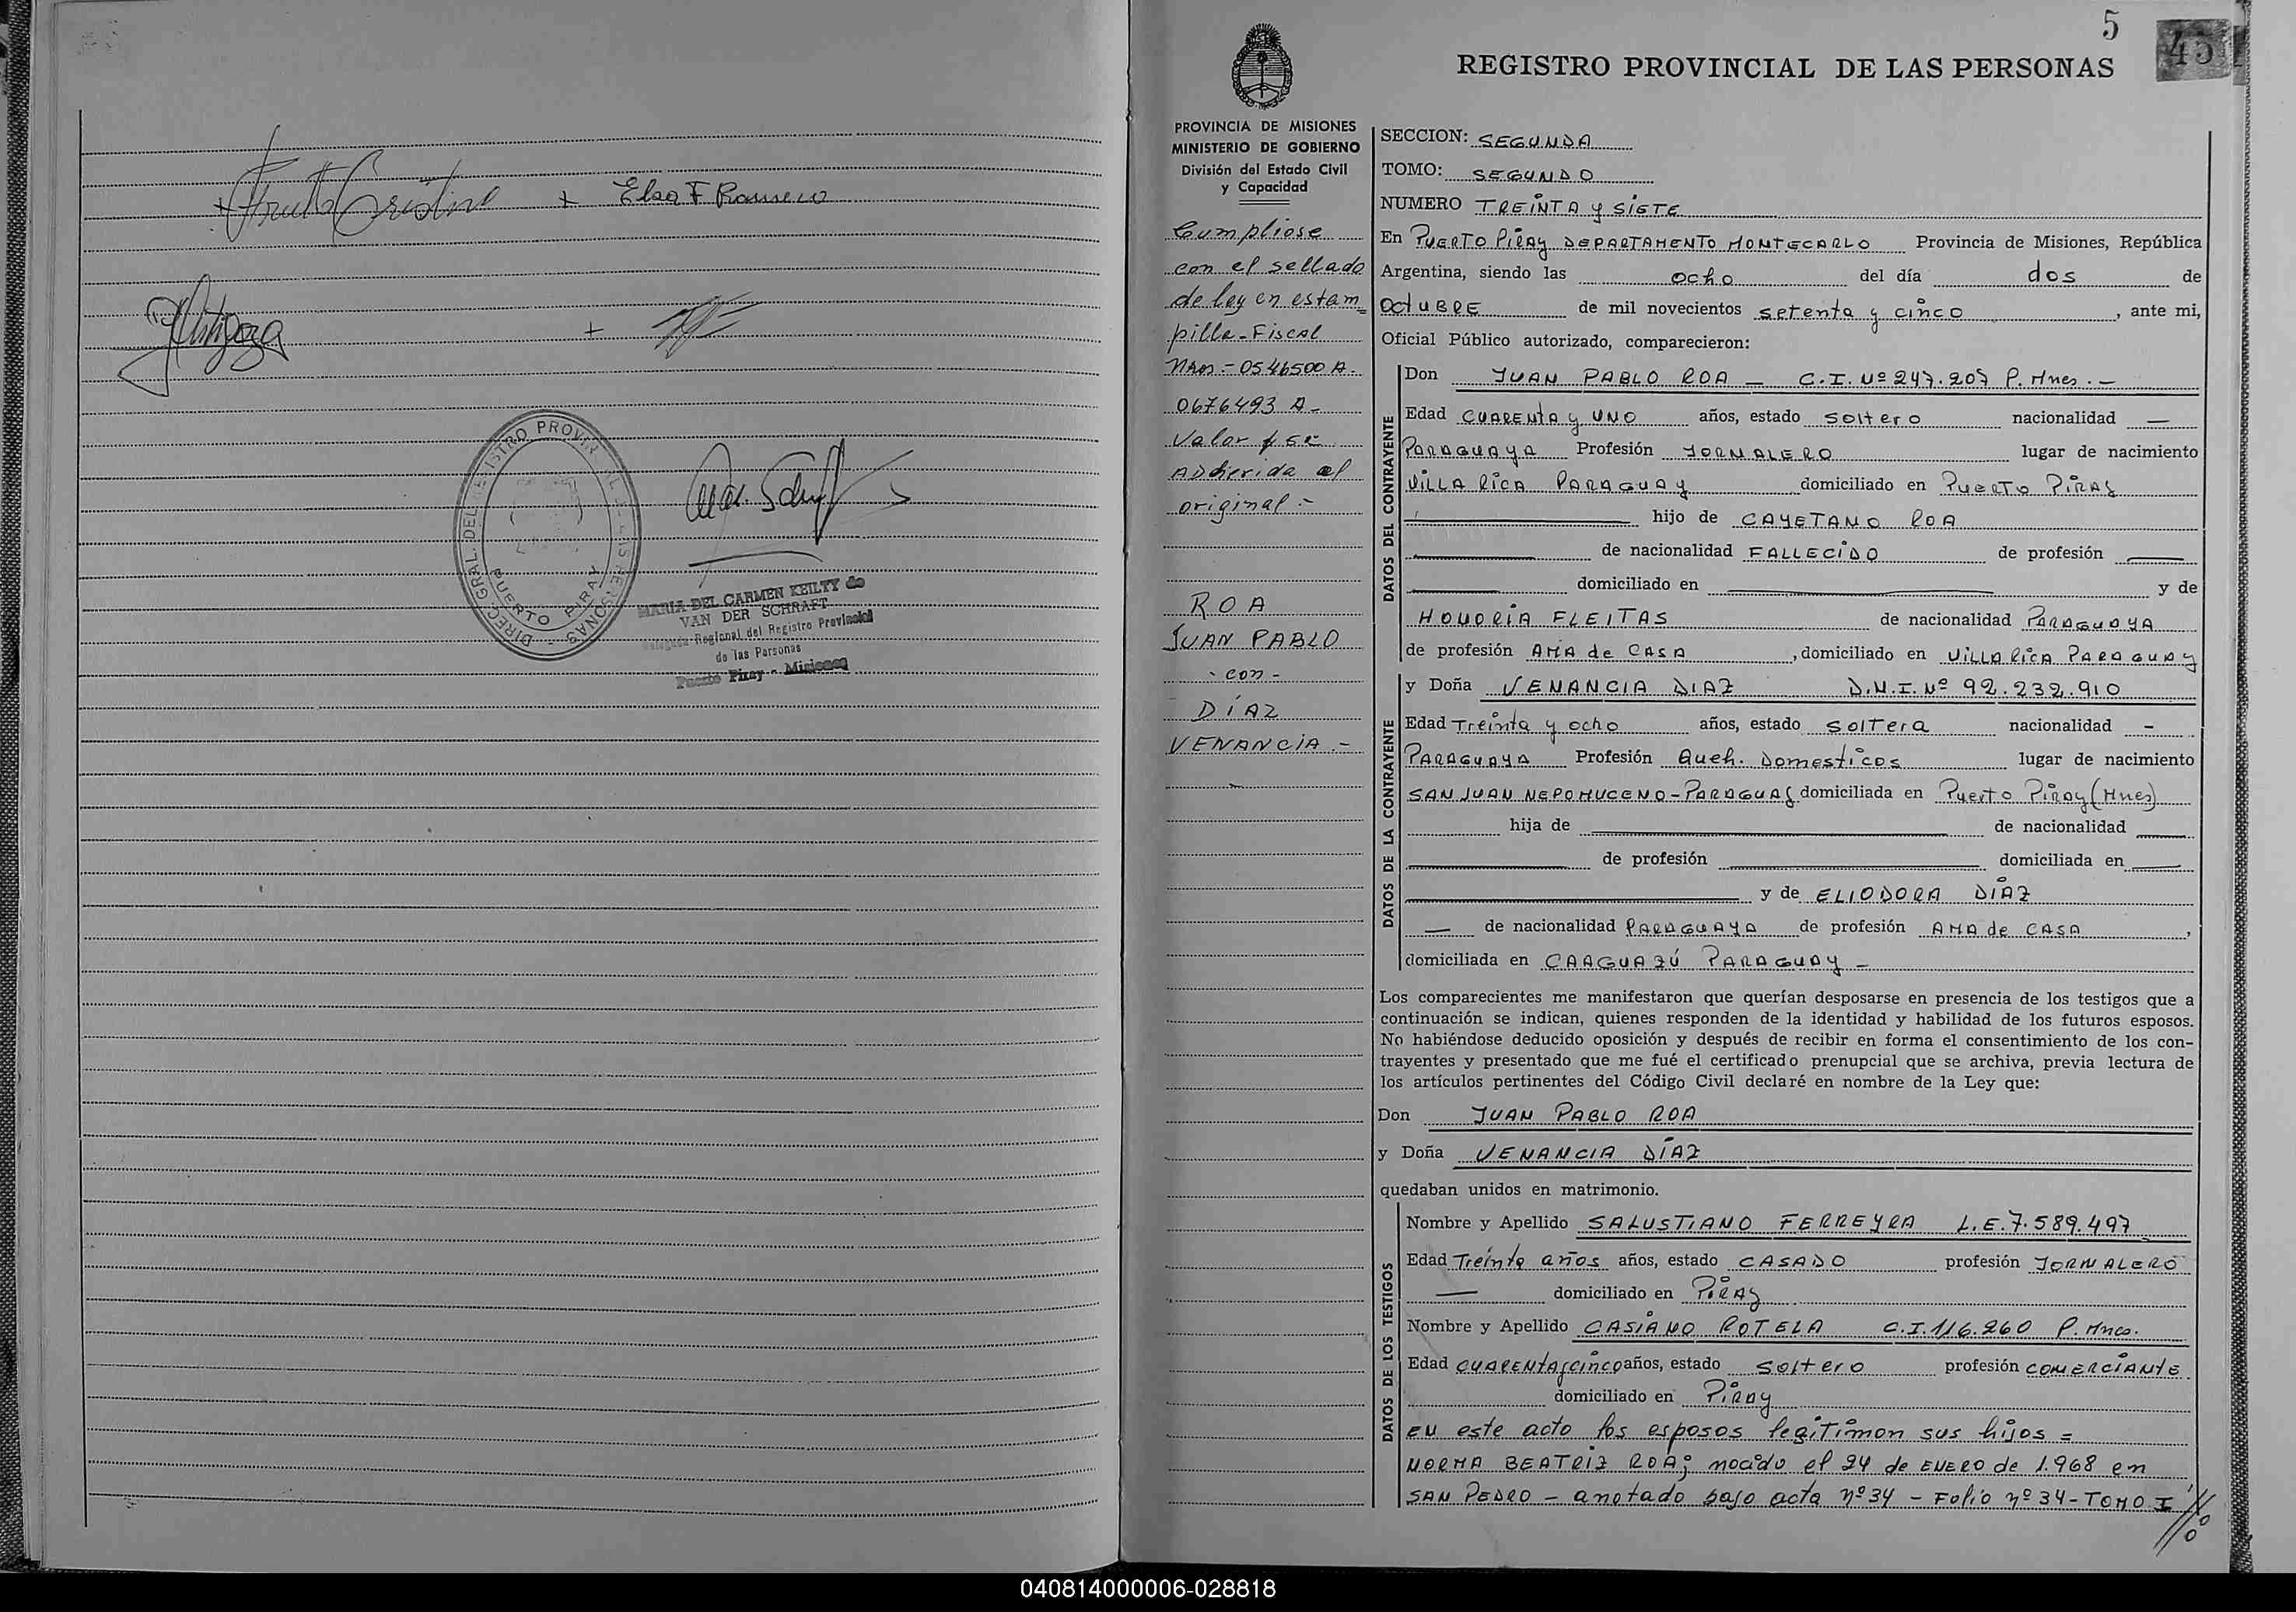 Elsa F Romero
DIREC. GRAL. DEL REGISTRO PROVINCIAL DE LAS PERSONAS
PUERTO PIRAY
MARIA DEL CARMEN KEILTY de
VAN DER SCHRAFT
Delegada Regional del Registro Provincial
de las Personas
Puerto Piray - Misiones
5
45
REGISTRO PROVINCIAL DE LAS PERSONAS
PROVINCIA DE MISIONES
MINISTERIO DE GOBIERNO
División del Estado Civil
y Capacidad
Cumpliose
con el sellado
de ley en estam
pilla - Fiscal
Nros - 0546500 A.
0676493 A -
Valor $
Adherida al
original -
ROA
JUAN PABLO
- con -
DÍAZ
VENANCIA. -
SECCION: SEGUNDA
TOMO: SEGUNDO
NUMERO TREINTA y SIETE
En PUERTO PIRAY DEPARTAMENTO MONTECARLO Provincia de Misiones, República
Argentina, siendo las ocho del día dos de
OCTUBRE de mil novecientos setenta y cinco, ante mi,
Oficial Público autorizado, comparecieron:
DATOS DEL CONTRAYENTE
Don JUAN PABLO ROA - C.I. Nº 247.207 P. Mnes. -
Edad CUARENTA y UNO años, estado soltero nacionalidad —
PARAGUAYA Profesión JORNALERO lugar de nacimiento
VILLA RICA PARAGUAY domiciliado en PUERTO PIRAY
hijo de CAYETANO ROA
de nacionalidad FALLECIDO de profesión
domiciliado en y de
HONORIA FLEITAS de nacionalidad PARAGUAYA
de profesión AMA de CASA, domiciliado en VILLA RICA PARAGUAY
DATOS DE LA CONTRAYENTE
y Doña VENANCIA DIAZ D.N.I. Nº 92.232.910
Edad Treinta y ocho años, estado soltera nacionalidad -
PARAGUAYA Profesión Queh. Domesticos lugar de nacimiento
SAN JUAN NEPOMUCENO - PARAGUAY domiciliada en Puerto Piray (Mnes)
hija de de nacionalidad
de profesión domiciliada en
y de ELIODORA DÍAZ
— de nacionalidad PARAGUAYA de profesión AMA de CASA,
domiciliada en CAAGUAZÚ PARAGUAY -
Los comparecientes me manifestaron que querían desposarse en presencia de los testigos que a
continuación se indican, quienes responden de la identidad y habilidad de los futuros esposos.
No habiéndose deducido oposición y después de recibir en forma el consentimiento de los con-
trayentes y presentado que me fué el certificado prenupcial que se archiva, previa lectura de
los artículos pertinentes del Código Civil declaré en nombre de la Ley que:
Don JUAN PABLO ROA
y Doña VENANCIA DÍAZ
quedaban unidos en matrimonio.
DATOS DE LOS TESTIGOS
Nombre y Apellido SALUSTIANO FERREYRA L.E. 7.589.497
Edad Treinta años años, estado CASADO profesión JORNALERO
— domiciliado en PIRAY
Nombre y Apellido CASIANO ROTELA C.I. 116.260 P. Mnes.
Edad CUARENTA y cinco años, estado soltero profesión COMERCIANTE
domiciliado en PIRAY
EN este acto los esposos legitiman sus hijos =
NORMA BEATRIZ ROA; nacida el 24 de ENERO de 1.968 en
SAN PEDRO - anotado bajo acta nº 34 - Folio nº 34 - TOMO I
040814000006-028818